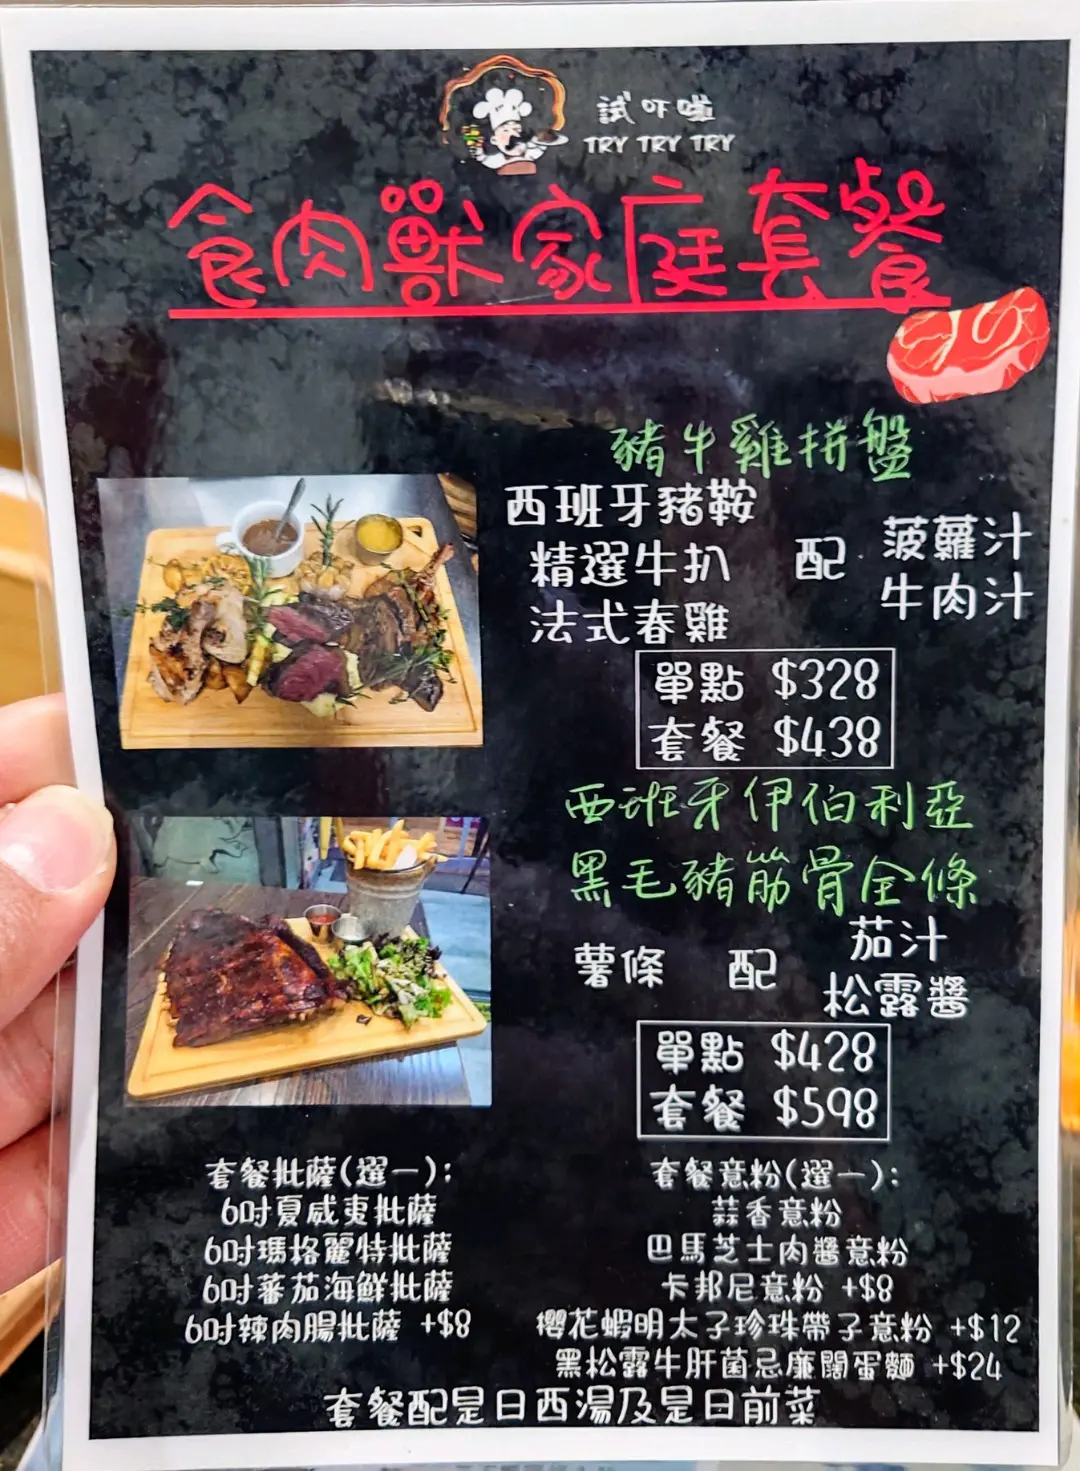 試吓啦
TRY TRY TRY
食肉獸家庭套餐
豬牛雞拼盤
西班牙豬鞍
精選牛扒
法式春雞
配
菠蘿汁
牛肉汁
單點 $328
套餐 $438
西班牙伊伯利亞
黑毛豬肋骨全條
薯條
配
茄汁
松露醬
單點 $428
套餐 $598
套餐批薩(選一):
6吋夏威夷批薩
6吋瑪格麗特批薩
6吋蕃茄海鮮批薩
6吋辣肉腸批薩 +$8
套餐意粉(選一):
蒜香意粉
巴馬芝士肉醬意粉
卡邦尼意粉 +$8
櫻花蝦明太子珍珠帶子意粉 +$12
黑松露牛肝菌忌廉闊蛋麵 +$24
套餐配是日西湯及是日前菜